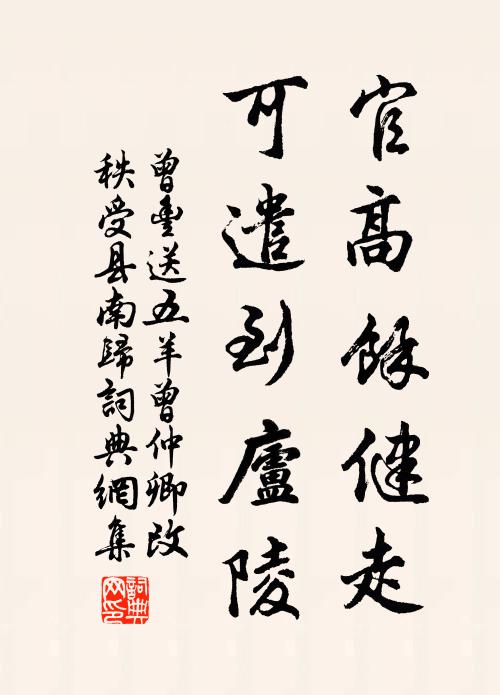 官高餘健走
可遣到廬陵
曾豐送五羊曾仲卿改
秩受县南歸詞典網集
詞典
网印